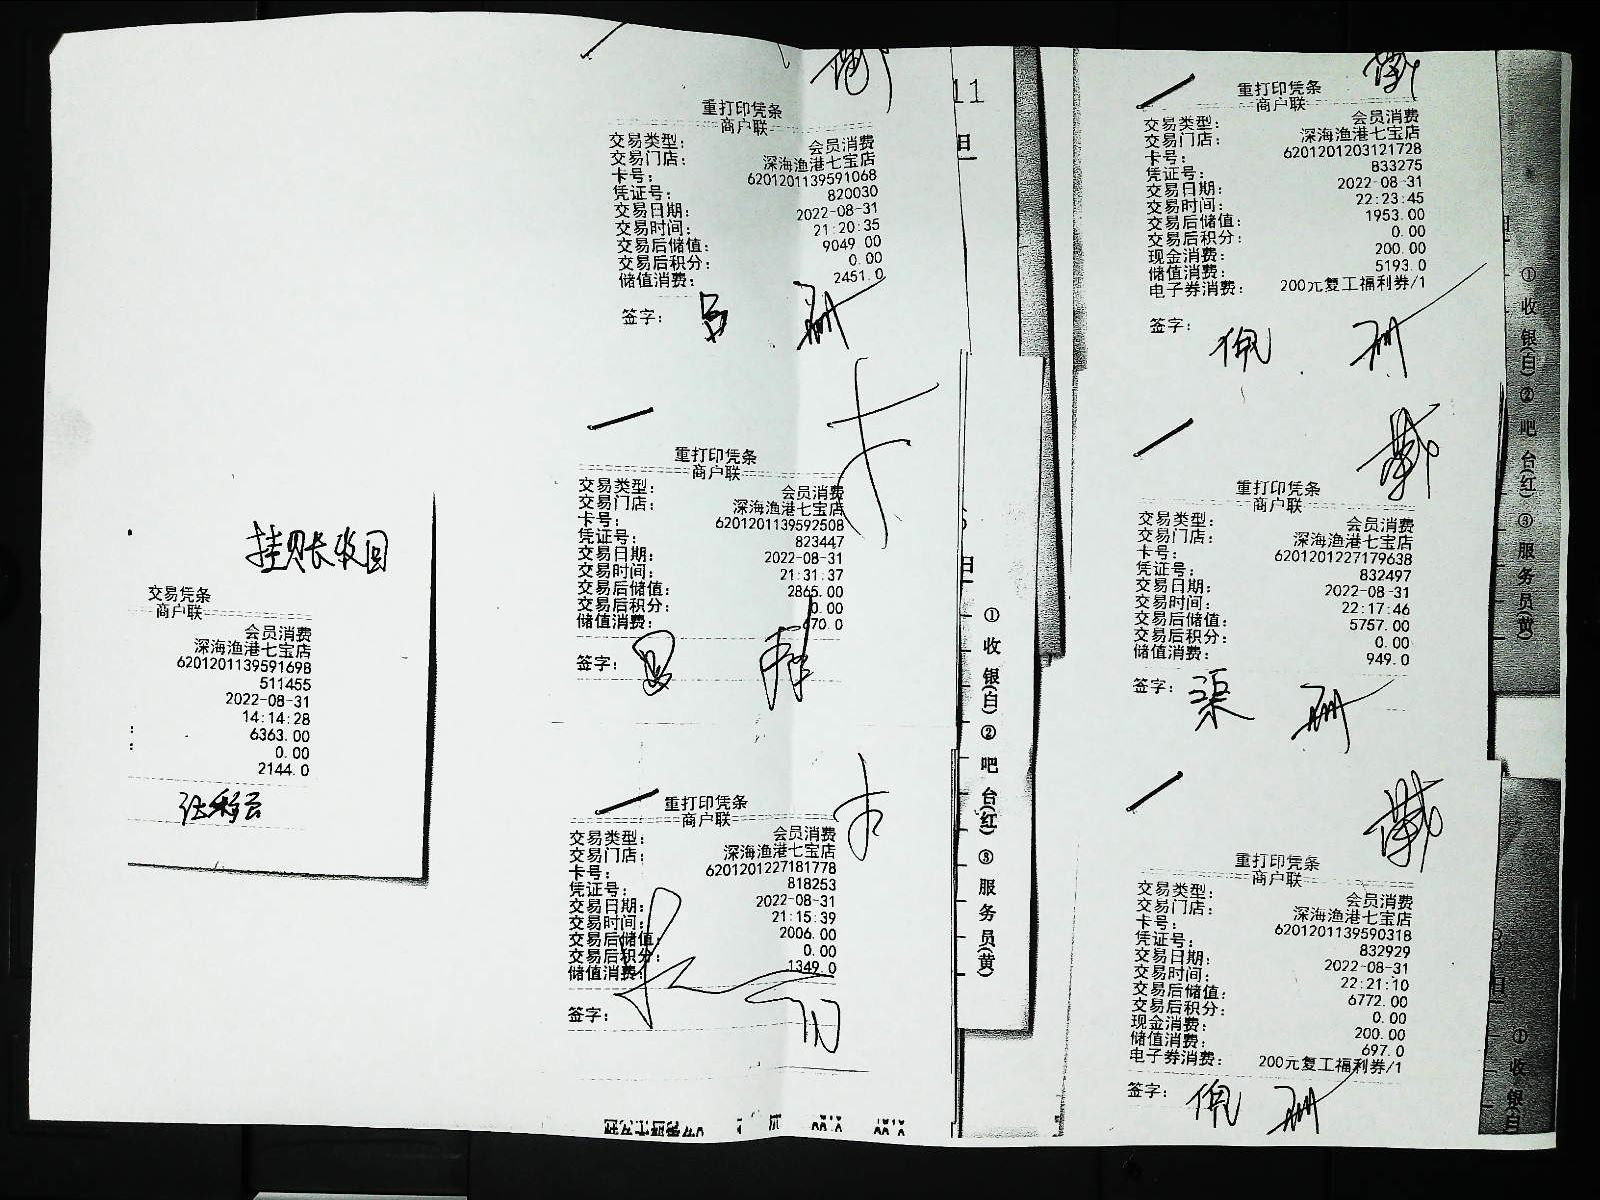 挂账收回
交易凭条
商户联
会员消费
深海渔港七宝店
6201201139591698
511455
2022-08-31
14:14:28
6363.00
0.00
2144.0
重打印凭条
商户联
交易类型: 会员消费
交易门店: 深海渔港七宝店
卡号: 6201201139591068
凭证号: 820030
交易日期: 2022-08-31
交易时间: 21:20:35
交易后储值: 9049.00
交易后积分: 0.00
储值消费: 2451.0
签字:
卡
重打印凭条
商户联
交易类型: 会员消费
交易门店: 深海渔港七宝店
卡号: 6201201139592508
凭证号: 823447
交易日期: 2022-08-31
交易时间: 21:31:37
交易后储值: 2865.00
交易后积分: 0.00
储值消费: 670.0
签字:
重打印凭条
商户联
交易类型: 会员消费
交易门店: 深海渔港七宝店
卡号: 6201201227181778
凭证号: 818253
交易日期: 2022-08-31
交易时间: 21:15:39
交易后储值: 2006.00
交易后积分: 0.00
储值消费: 1349.0
签字:
11
①收银(白)②吧台(红)③服务员(黄)
重打印凭条
商户联
交易类型: 会员消费
交易门店: 深海渔港七宝店
卡号: 6201201203121728
凭证号: 833275
交易日期: 2022-08-31
交易时间: 22:23:45
交易后储值: 1953.00
交易后积分: 0.00
现金消费: 200.00
储值消费: 5193.0
电子券消费: 200元复工福利券/1
签字:
重打印凭条
商户联
交易类型: 会员消费
交易门店: 深海渔港七宝店
卡号: 6201201227179638
凭证号: 832497
交易日期: 2022-08-31
交易时间: 22:17:46
交易后储值: 5757.00
交易后积分: 0.00
储值消费: 949.0
签字: 渠
重打印凭条
商户联
交易类型: 会员消费
交易门店: 深海渔港七宝店
卡号: 6201201139590318
凭证号: 832929
交易日期: 2022-08-31
交易时间: 22:21:10
交易后储值: 6772.00
交易后积分: 0.00
现金消费: 200.00
储值消费: 697.0
电子券消费: 200元复工福利券/1
签字:
①收银(白)②吧台(红)③服务员(黄)
①收银(白